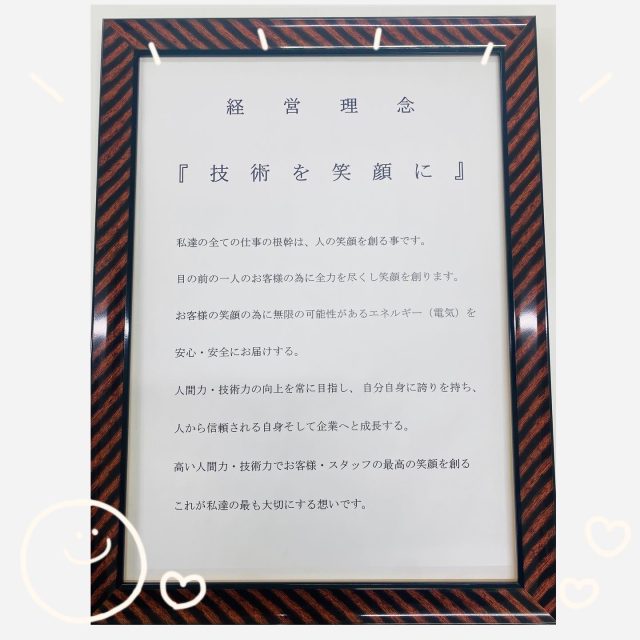 経営理念
『技術を笑顔に』
私達の全ての仕事の根幹は、人の笑顔を創る事です。
目の前の一人のお客様の為に全力を尽くし笑顔を創ります。
お客様の笑顔の為に無限の可能性があるエネルギー（電気）を
安心・安全にお届けする。
人間力・技術力の向上を常に目指し、自分自身に誇りを持ち、
人から信頼される自身そして企業へと成長する。
高い人間力・技術力でお客様・スタッフの最高の笑顔を創る
これが私達の最も大切にする想いです。